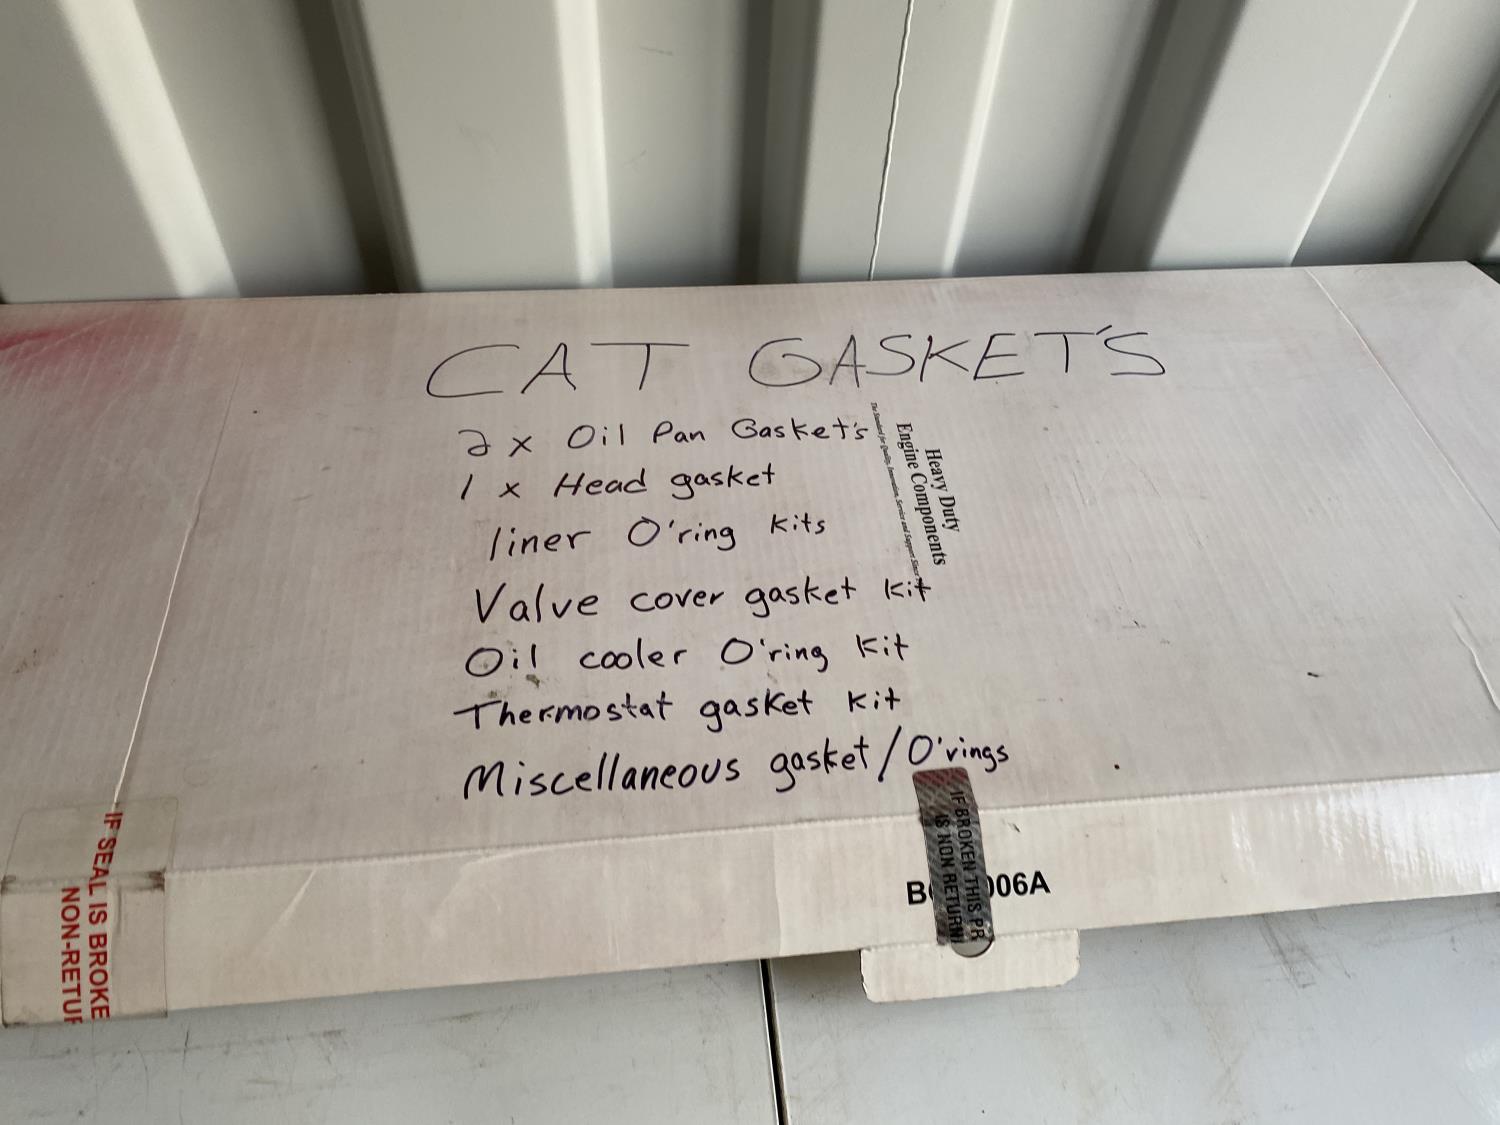 CAT GASKET'S
2 x Oil Pan Gasket's
1 x Head gasket
liner O'ring kits
Valve cover gasket kit
Oil cooler O'ring kit
Thermostat gasket kit
Miscellaneous gasket/O'rings
Heavy Duty
Engine Components
The Standard for Quality, Innovation, Service and Support Since
IF SEAL IS BROKE
NON-RETUR
IF BROKEN THIS PR
IS NON RETURN
B 006A